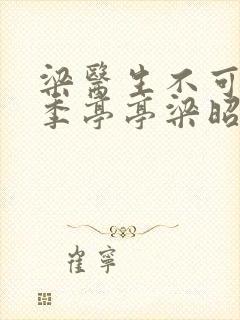 梁醫生不可
季亭亭梁昭
崔寧